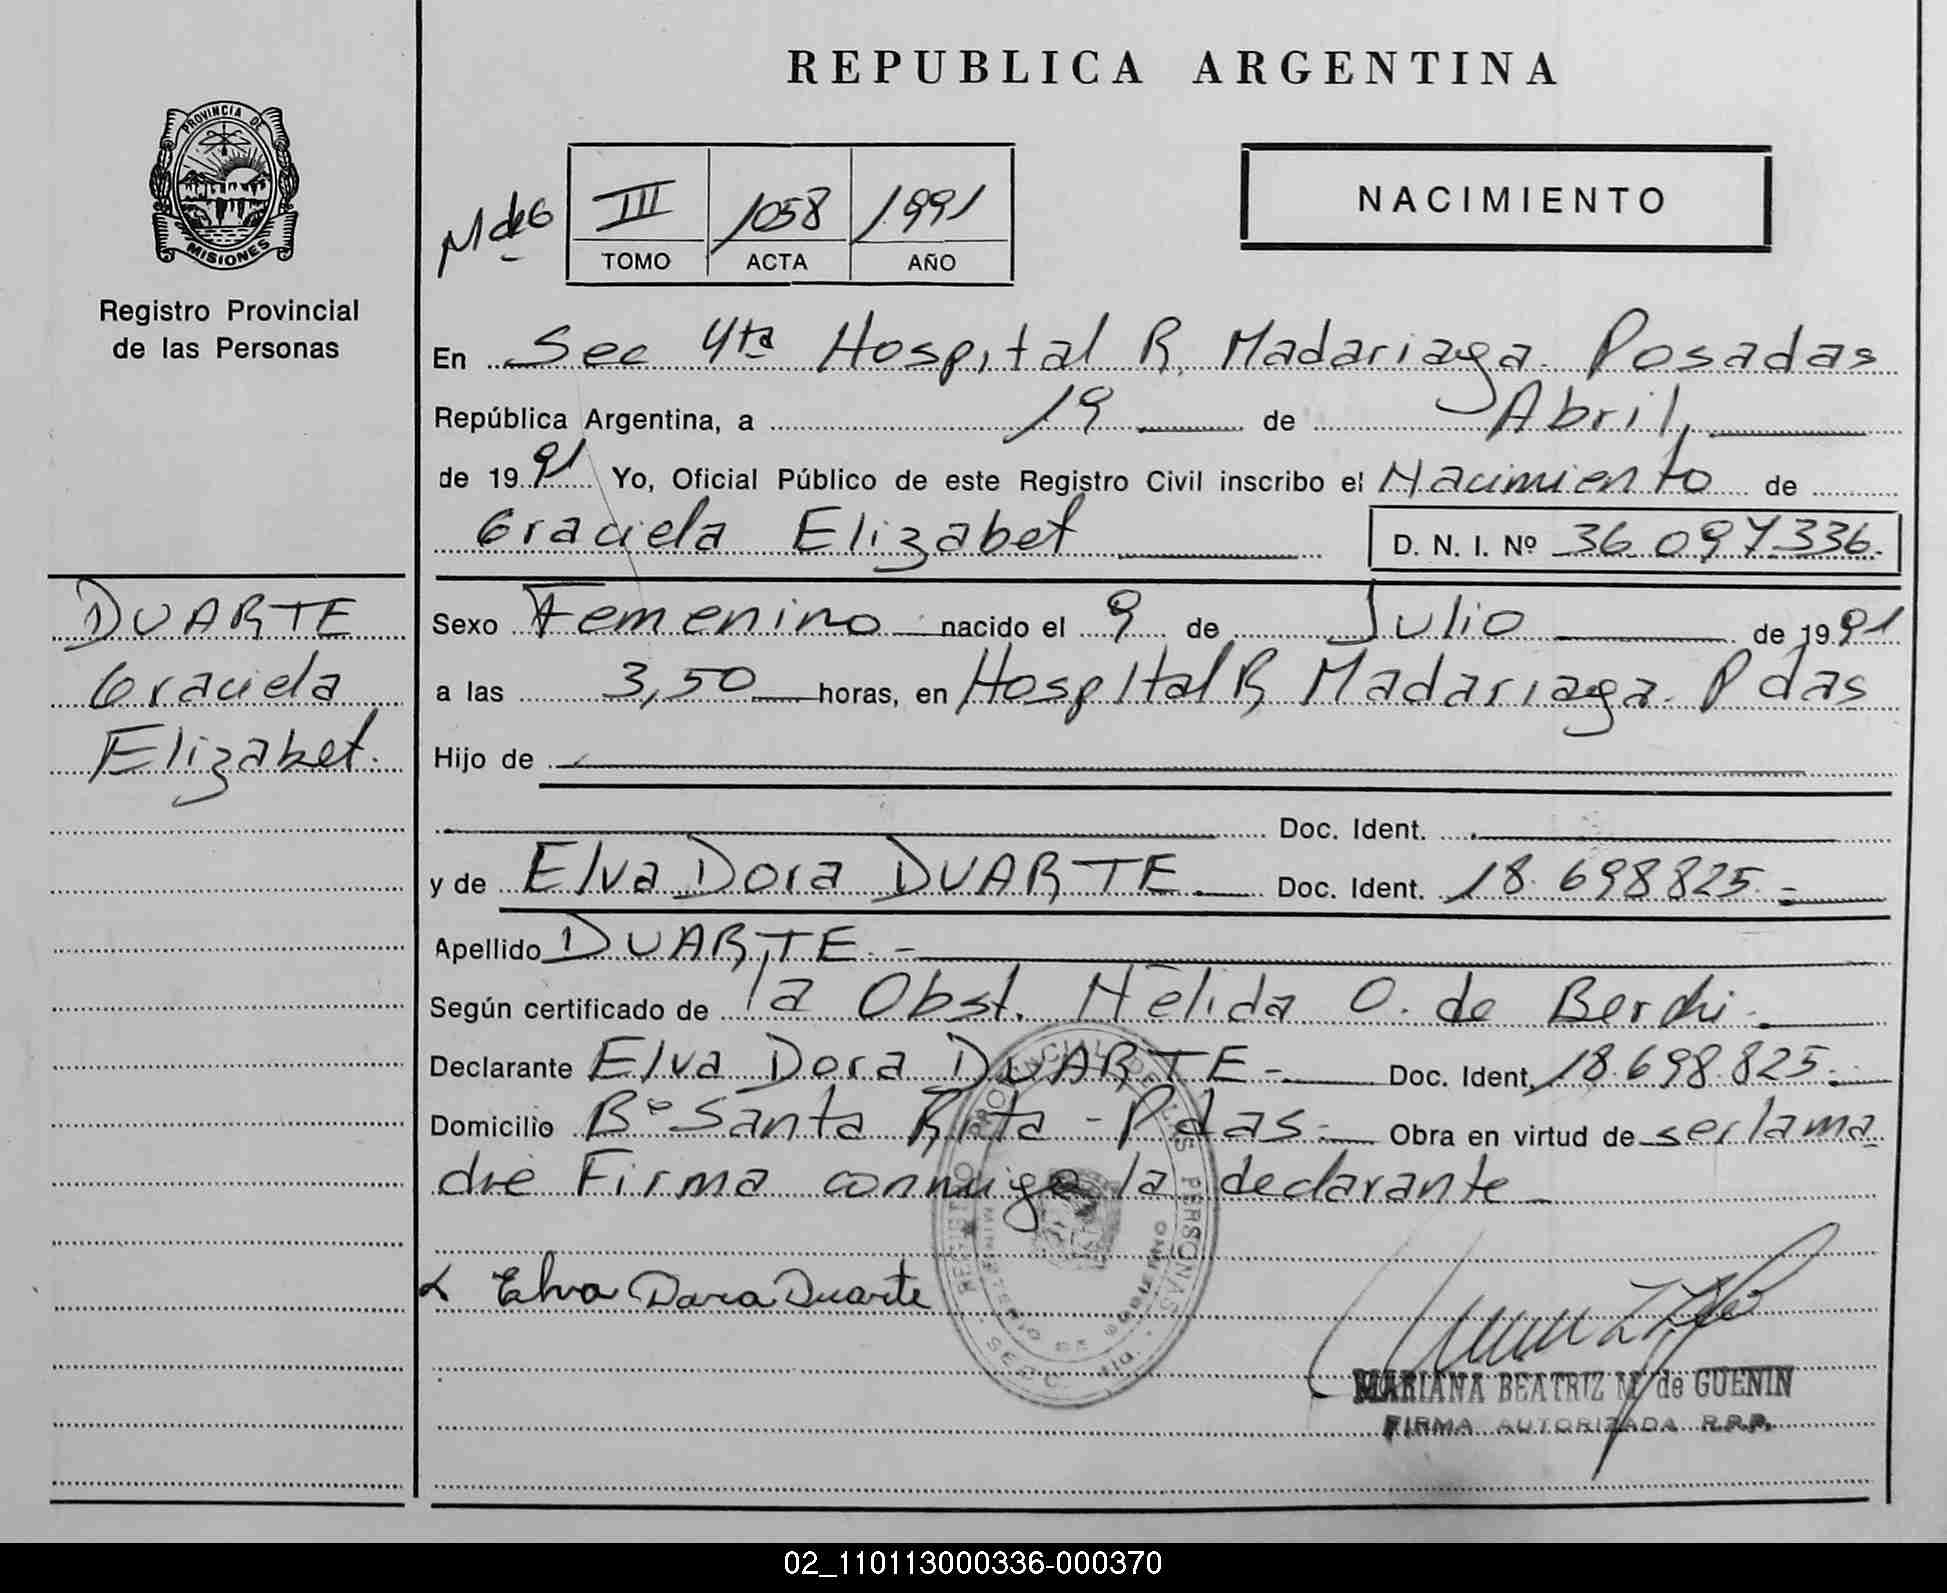 REPUBLICA ARGENTINA
PROVINCIA DE
MISIONES
Registro Provincial
de las Personas
III 1058 1991
TOMO ACTA AÑO
NACIMIENTO
En Sec 4ta Hospital R. Madariaga. Posadas
República Argentina, a 19 de Abril,
de 1991 Yo, Oficial Público de este Registro Civil inscribo el Nacimiento de
Graciela Elizabet D. N. I. Nº 36.097336.
DUARTE
Graciela
Elizabet.
Sexo Femenino nacido el 9 de Julio de 1991
a las 3,50 horas, en Hospital R, Madariaga. Pdas
Hijo de
Doc. Ident.
y de Elva Dora DUARTE Doc. Ident. 18.698825.-
Apellido DUARTE.-
Según certificado de la Obst. Nélida O. de Berchi.
Declarante Elva Dora DUARTE- Doc. Ident. 18.698.825.
Domicilio Bº Santa Rita - Pdas.- Obra en virtud de ser la ma
dre Firma conmigo la declarante
REGISTRO PROVINCIAL DE LAS PERSONAS
MINISTERIO DE GOBIERNO
SECC. 4ta.
Elva Dora Duarte
MARIANA BEATRIZ M. de GUENIN
FIRMA AUTORIZADA R.P.P.
02_110113000336-000370